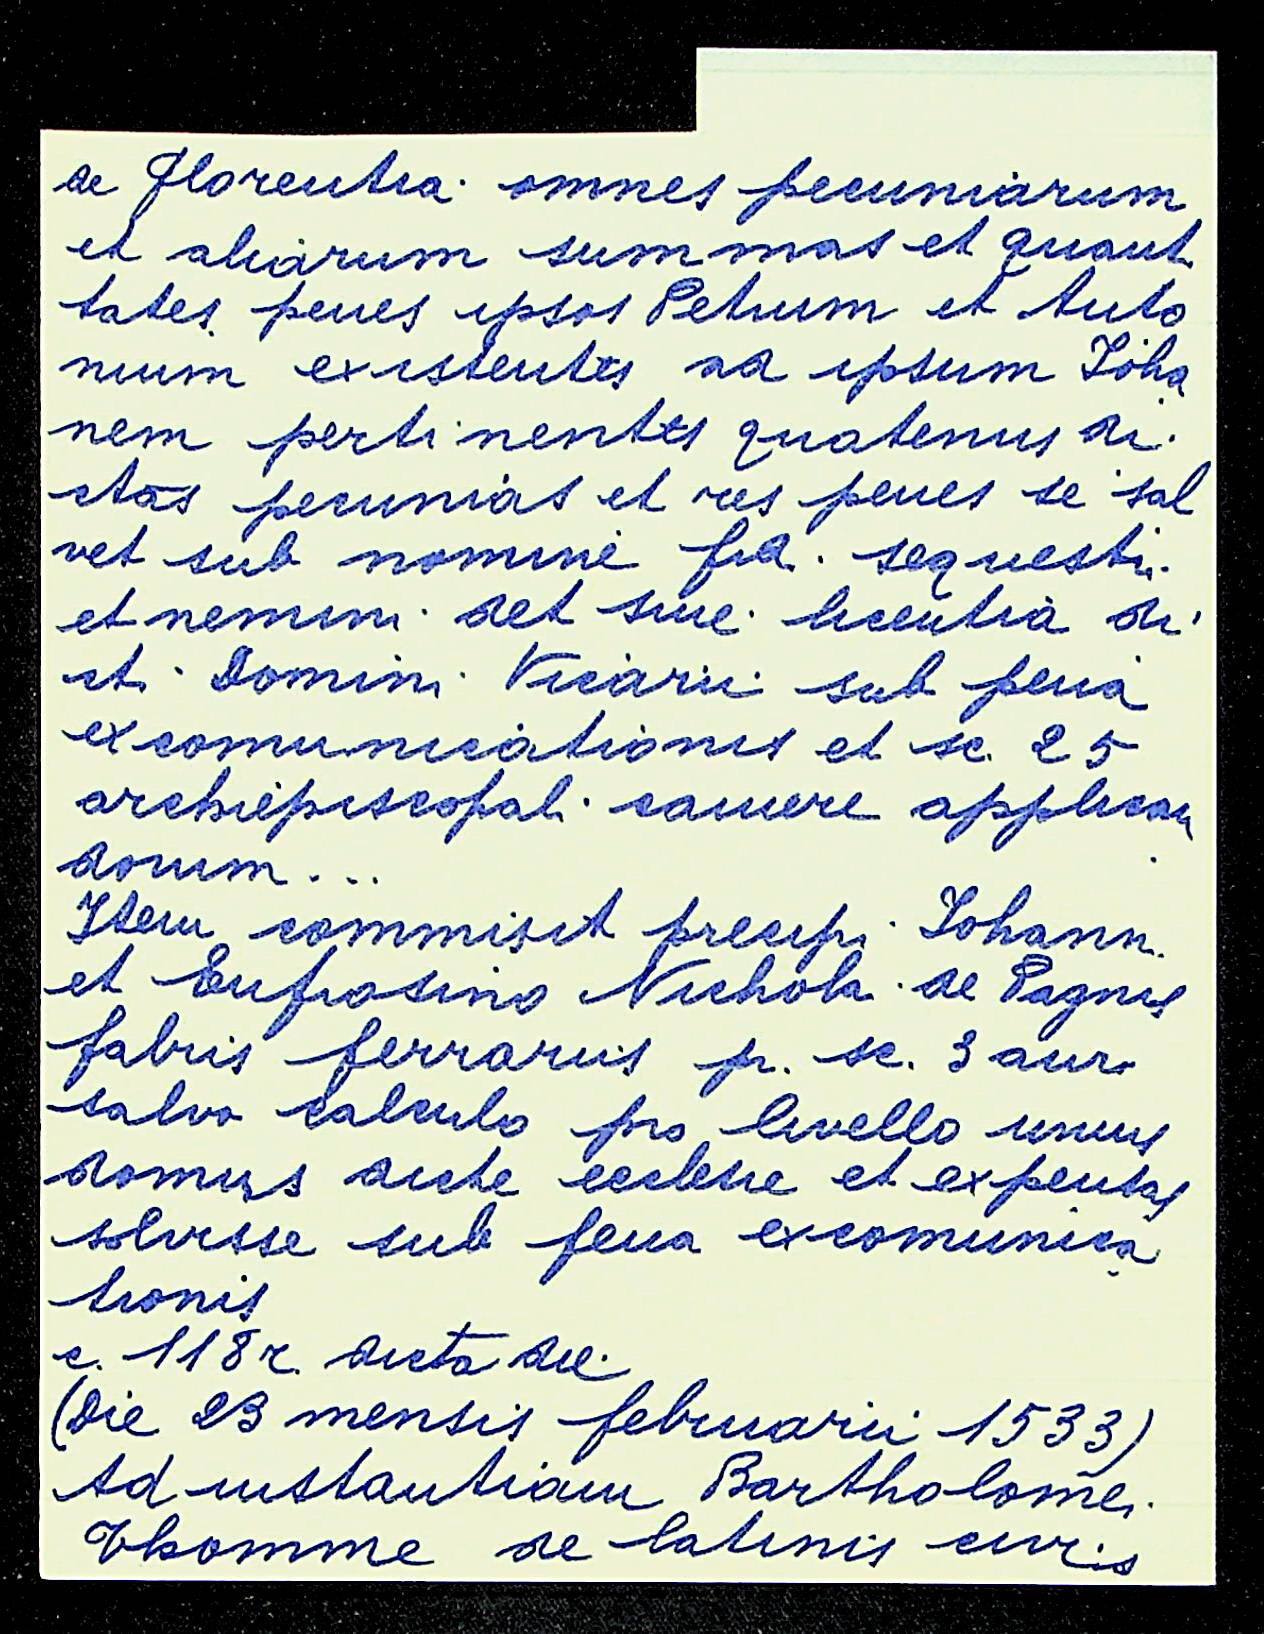 de Florentia omnes pecuniarum
et aliarum summas et quanti
tates penes ipsos Petrum et Anto
nium existentes ad ipsum Joha
nem pertinentes quatenus di
ctas pecunias et res penes se sal
vet sub nomine fid. sequestri
et nemini det sine licentia di
cti Domini Vicarii sub pena
excomunicationis et sc. 25
archiepiscopali camere applican
dorum...
Item commisit precipi Johanni
et Eufrosino Nicholai de Pagnis
fabris ferrariis p. sc. 3 auri
salvo calculo pro livello unius
domus dicte ecclesie et expensas
solvisse sub pena excomunica
tionis
c. 118 r. dicta die
(Die 23 mensis februarii 1533)
Ad instantiam Bartholomei
Thomme de latinis civis